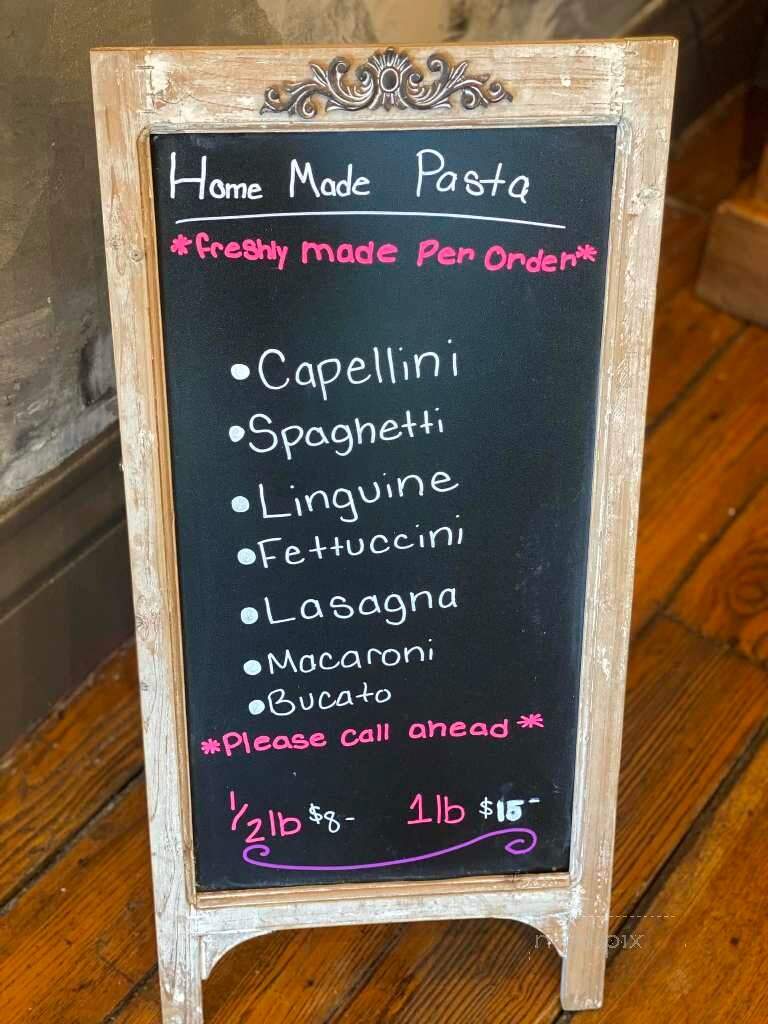 Home Made Pasta
*freshly made Per Order*
• Capellini
• Spaghetti
• Linguine
• Fettuccini
• Lasagna
• Macaroni
• Bucato
*Please call ahead*
1/2 lb $8- 1 lb $15-